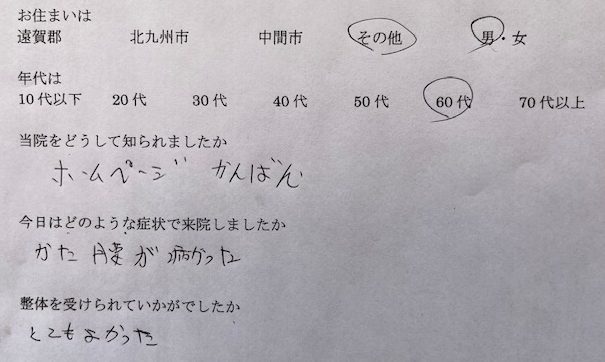 お住まいは
遠賀郡 北九州市 中間市 その他 男・女
年代は
10代以下 20代 30代 40代 50代 60代 70代以上
当院をどうして知られましたか
ホームページ かんばん
今日はどのような症状で来院しましたか
かた 腰が病かった
整体を受けられていかがでしたか
とてもよかった